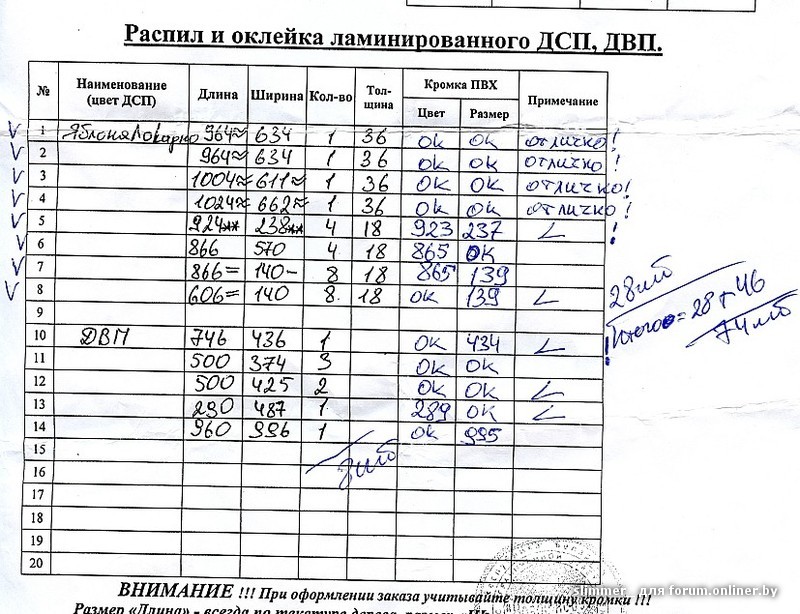 Распил и оклейка ламинированного ДСП, ДВП.
№ Наименование (цвет ДСП) Длина Ширина Кол-во Тол-щина Кромка ПВХ Цвет Размер Примечание
V 1 Яблоня Локарно 964≈ 634 1 36 ок ок отлично!
V 2 964≈ 634 1 36 ок ок отлично!
V 3 1004≈ 611≈ 1 36 ок ок отлично!
V 4 1024≈ 662≈ 1 36 ок ок отлично!
V 5 924 238 4 18 923 237 !
V 6 866 570 4 18 865 ок
V 7 866= 140- 8 18 865 139
V 8 606= 140 8 18 ок 139
28
9
Итого=28+46
74
10 ДВП 746 436 1 ок 434 !
11 500 374 3 ок ок
12 500 425 2 ок ок
13 290 487 1 289 ок
14 960 996 1 ок 995
15
16
17
18
19
20
ВНИМАНИЕ !!! При оформлении заказа учитывайте толщину кромки !!!
Размер «Длина» - всегда по текстуре дерева
Slimmer для forum.onliner.by